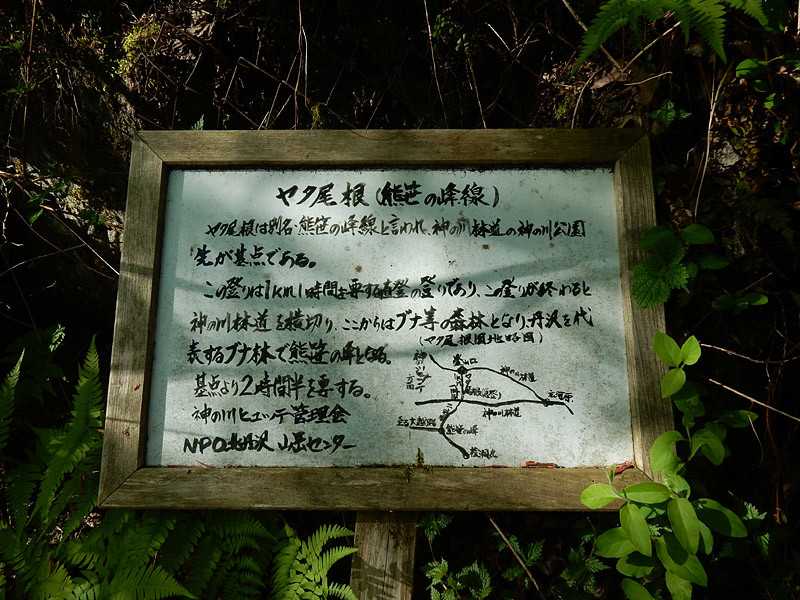 ヤタ尾根(熊笹の峰線)
ヤタ尾根は別名・熊笹の峰線と言われ、神の川林道の神の川公園
先が基点である。
この登りは1km1時間を要する直登の登りであり、この登りが終わると
神の川林道を横切り、ここからはブナ等の森林となり、丹沢を代
表するブナ林で熊笹の峰となる。
基点より2時間半を要する。
神の川ヒュッテ管理会
NPO北丹沢山岳センター
(ヤタ尾根周地略図)
登山口
神の川林道
神の川林道
熊笹の峰